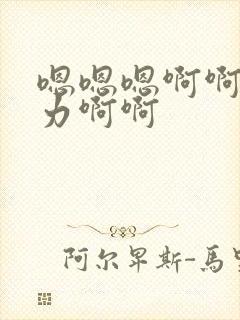 嗯嗯嗯啊啊
力啊啊
阿尔卑斯-馬